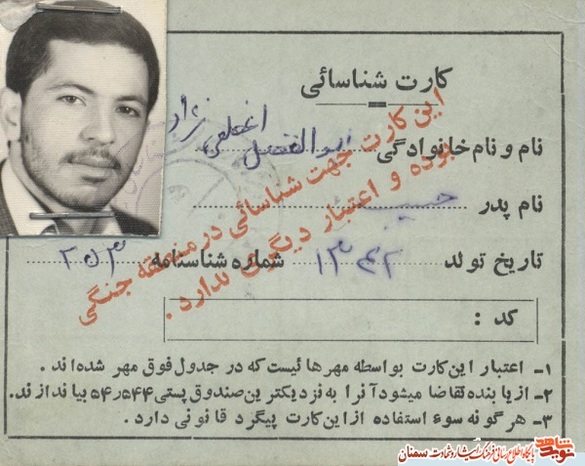 کارت شناسائی
نام و نام خانوادگی ابوالفضل
نام پدر حسین
تاریخ تولد ۱۳۴۲ شماره شناسنامه ۲۵۳
این کارت جهت شناسائی در منطقه جنگی
بوده و اعتبار دیگری ندارد .
کد :
۱- اعتبار این کارت بواسطه مهرهائیست که در جدول فوق مهر شده‌اند .
۲- از یابنده تقاضا میشود آنرا به نزدیکترین صندوق پستی ۵۴٫۵۴۴ بیاندازند.
۳- هرگونه سوء استفاده از این کارت پیگرد قانونی دارد .
نوید شاهد
پایگاه اطلاع رسانی فرهنگ ایثار و شهادت سمنان